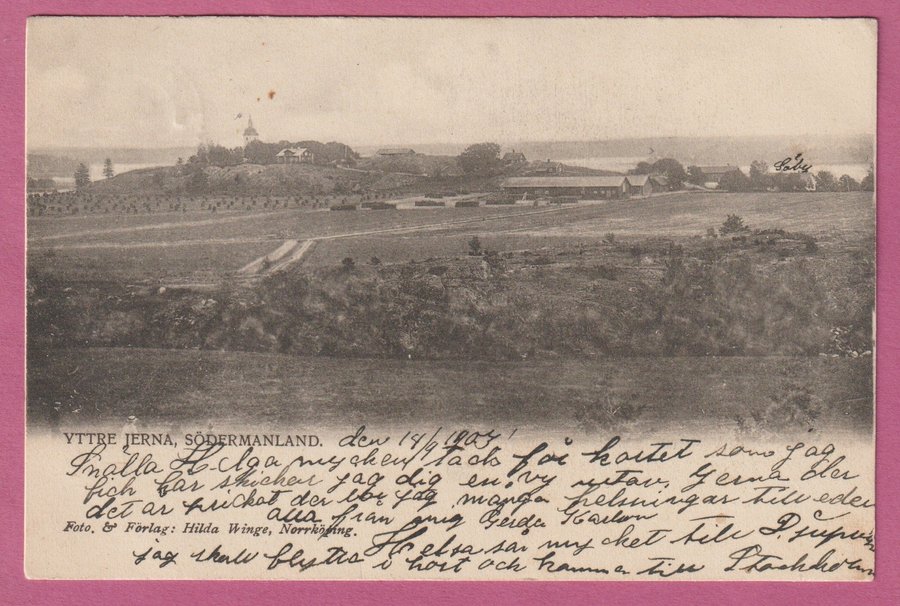 Säby
YTTRE JERNA, SÖDERMANLAND. den 14/9 1904
Snälla Helga mycken tack för kortet som jag
fick här skickar jag dig en vy utav Jerna der
det är prickat der bor jag många helsningar till eder
alla från mig Gerda Karlson
Foto. & Förlag: Hilda Winge, Norrköping.
Helsa så mycket till
jag skall flytta i höst och kommer till Stockholm